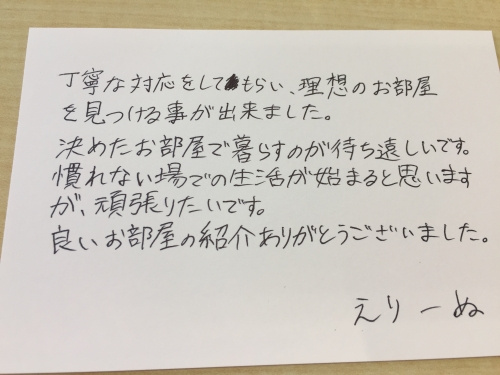 丁寧な対応をしてもらい、理想のお部屋
を見つける事が出来ました。
決めたお部屋で暮らすのが待ち遠しいです。
慣れない場での生活が始まると思います
が、頑張りたいです。
良いお部屋の紹介ありがとうございました。
えりーぬ